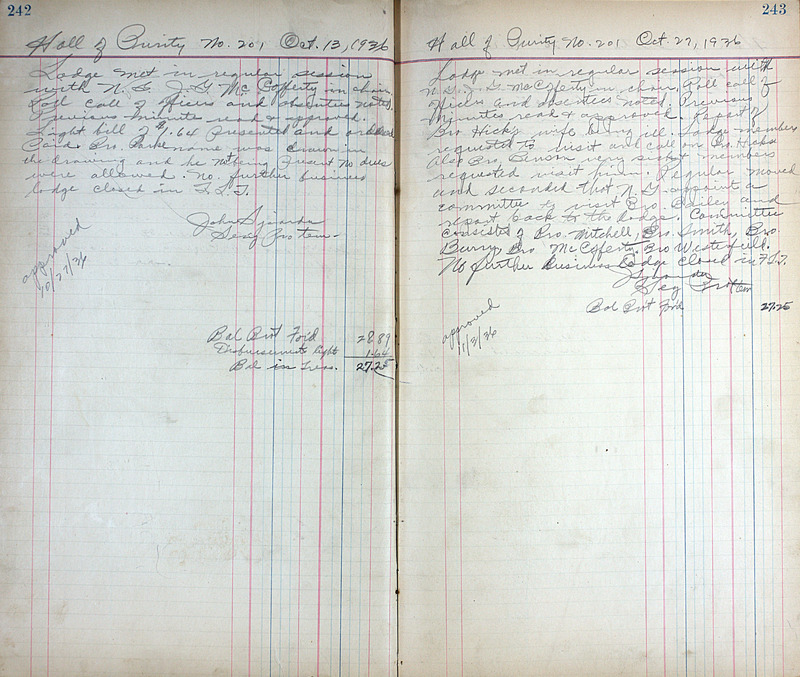 242
Hall of Purity No. 201 Oct. 13, 1936
Lodge met in regular session
with N. G. J. G. McCafferty in chair,
Roll call of officers and absentees noted,
Previous minute read & approved.
Light bill of $1.64 Presented and ordered
Paid. Bro. name was drawn in
the drawing and he not being Present no dues
were allowed. No. further business
lodge closed in F. L. T.
John
Secy Pro tem-
approved
10/27/36
Bal Brot Ford 28.89
Disbursements light 1.64
Bal in Treas. 27.25
243
Hall of Purity No. 201 Oct. 27, 1936
Lodge met in regular session with
N. G. J. G. McCafferty in chair, Roll call of
officers and absentees noted. Previous
minutes read & approved. Report of
Bro Hicks wife being ill. Lodge members
requested to visit and call on Bro. Hicks
Also Bro, Benson very sick members
requested visit him. Regular moved
and seconded that N. G. appoint a
committee to visit Bro Bailey and
report back to the lodge. Committee
consisted of Bro. Mitchell, Bro. Smith, Bro
Burry, Bro McCafferty, Bro Westerfield.
No further business lodge closed in F. L. T.
Secy Protem
Bal Brot Ford 27.25
approved
11/3/36